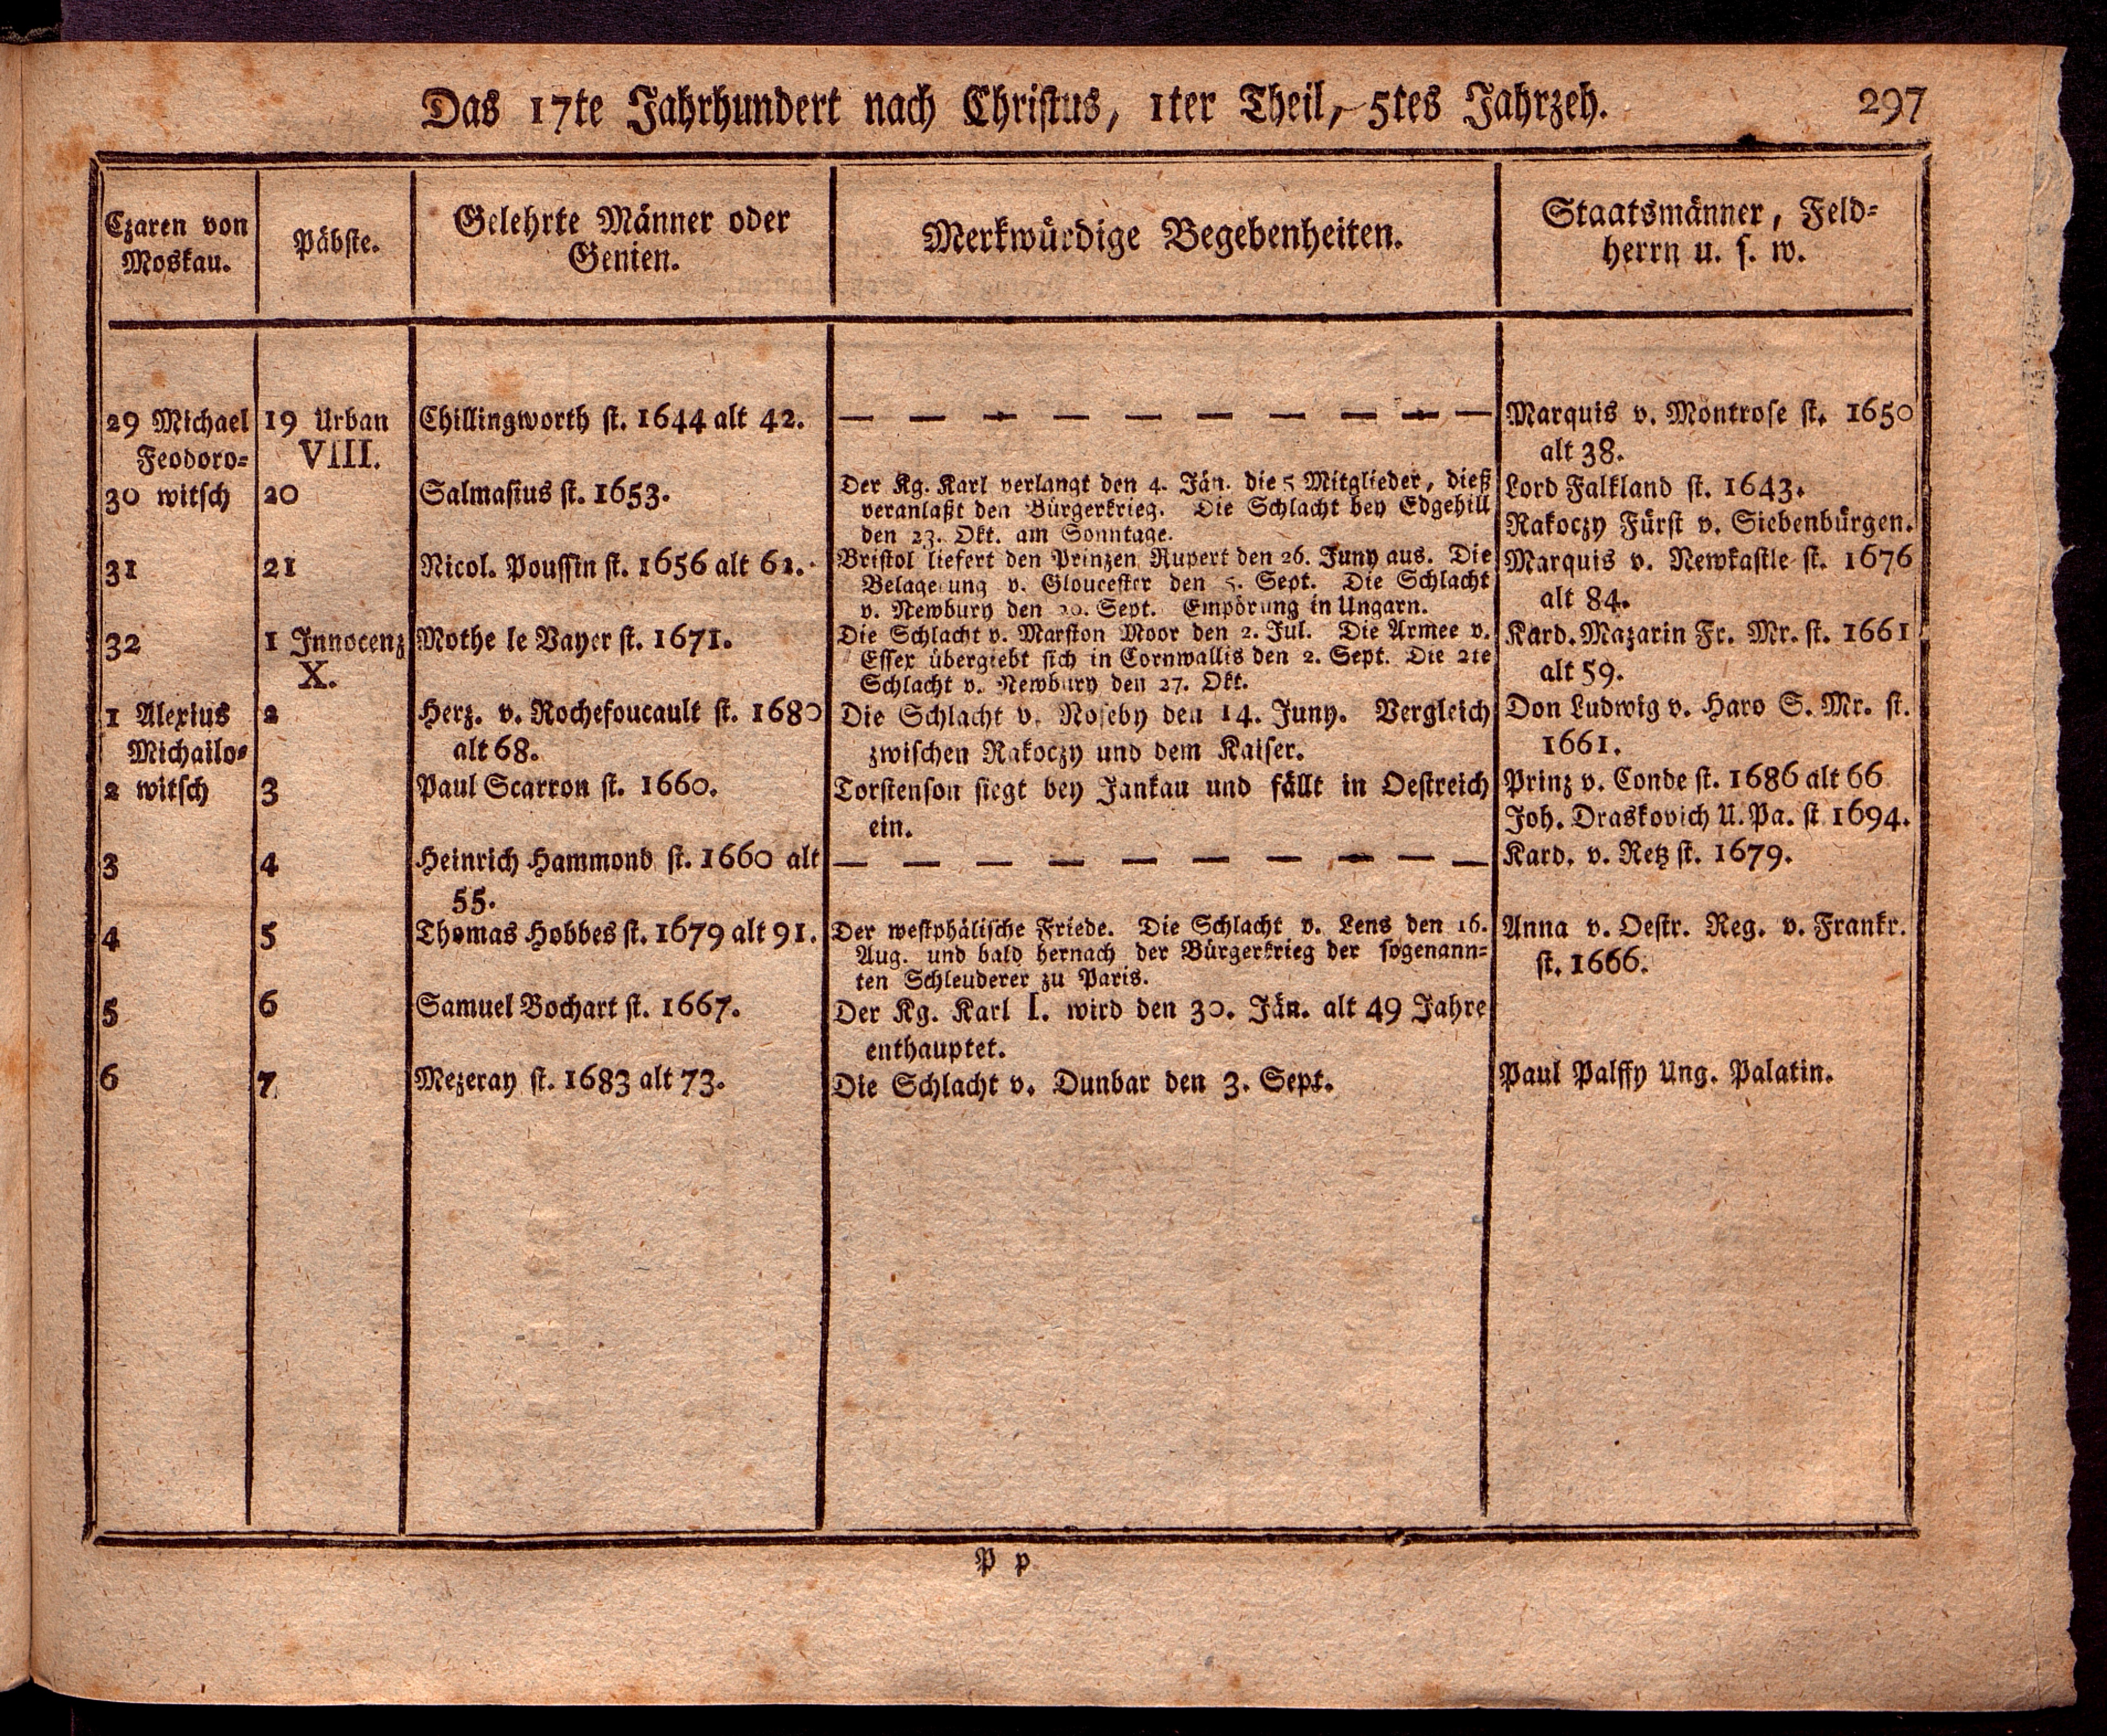 Das 17te Jahrhundert nach Christus, 1ter Theil, 5tes Jahrzeh. 297
Czaren von
Moskau.
Päbste.
Gelehrte Männer oder
Genien.
Merkwürdige Begebenheiten.
Staatsmänner, Feld-
herrn u. s. w.
29 Michael
Feodoro-
30 witsch
31
32
1 Alexius
Michailo-
2 witsch
3
4
5
6
19 Urban
VIII.
20
21
1 Innocenz
X.
2
3
4
5
6
7
Chillingworth st. 1644 alt 42.
Salmasius st. 1653.
Nicol. Poussin st. 1656 alt 62.
Mothe le Vayer st. 1671.
Herz. v. Rochefoucault st. 1680
alt 68.
Paul Scarron st. 1660.
Heinrich Hammond st. 1660 alt
55.
Thomas Hobbes st. 1679 alt 91.
Samuel Bochart st. 1667.
Mezeray st. 1683 alt 73.
— — — — — — — — — —
Der Kg. Karl verlangt den 4. Jän. die 5 Mitglieder, dieß
veranlaßt den Bürgerkrieg. Die Schlacht bey Edgehill
den 23. Okt. am Sonntage.
Bristol liefert den Prinzen Rupert den 26. Juny aus. Die
Belagerung v. Gloucester den 5. Sept. Die Schlacht
v. Newbury den 20. Sept. Empörung in Ungarn.
Die Schlacht v. Marston Moor den 2. Jul. Die Armee v.
Essex übergiebt sich in Cornwallis den 2. Sept. Die 2te
Schlacht v. Newbury den 27. Okt.
Die Schlacht v. Noseby den 14. Juny. Vergleich
zwischen Rakoczy und dem Kaiser.
Torstenson siegt bey Jankau und fällt in Oestreich
ein.
— — — — — — — — — —
Der westphälische Friede. Die Schlacht v. Lens den 16.
Aug. und bald hernach der Bürgerkrieg der sogenann-
ten Schleuderer zu Paris.
Der Kg. Karl I. wird den 30. Jän. alt 49 Jahre
enthauptet.
Die Schlacht v. Dunbar den 3. Sept.
Marquis v. Montrose st. 1650
alt 38.
Lord Falkland st. 1643.
Rakoczy Fürst v. Siebenbürgen.
Marquis v. Newkastle st. 1676
alt 84.
Kard. Mazarin Fr. Mr. st. 1661
alt 59.
Don Ludwig v. Haro S. Mr. st.
1661.
Prinz v. Conde st. 1686 alt 66
Joh. Draskovich U. Pa. st 1694.
Kard. v. Retz st. 1679.
Anna v. Oestr. Reg. v. Frankr.
st. 1666.
Paul Palffy Ung. Palatin.
P p